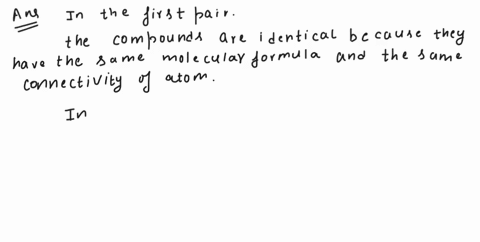 Ans In the first pair.
the compounds are identical because they
have the same molecular formula and the same
connectivity of atom.
In